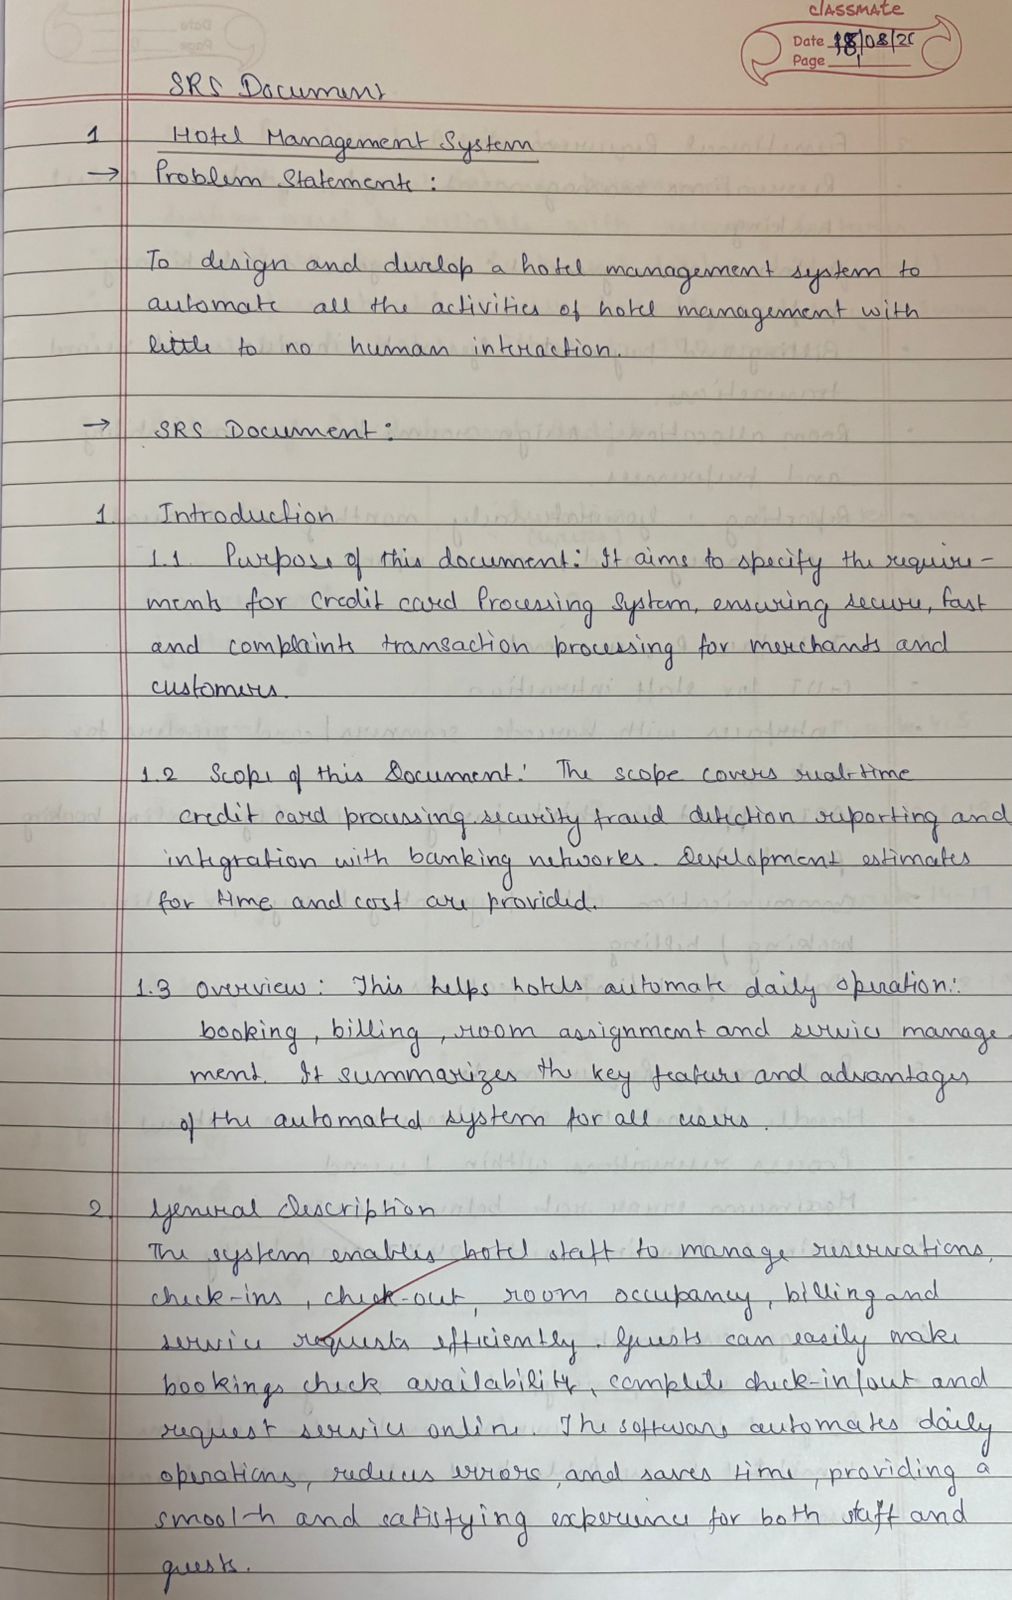 classmate
Date 18/08/25
Page 1
SRS Document
1 Hotel Management System
→ Problem Statement :
To design and develop a hotel management system to
automate all the activities of hotel management with
little to no human interaction.
→ SRS Document :
1. Introduction
1.1 Purpose of this document: It aims to specify the require-
ments for Credit card Processing System, ensuring secure, fast
and complaints transaction processing for merchants and
customers.
1.2 Scope of this Document: The scope covers real-time
credit card processing, security fraud detection reporting and
integration with banking networks. Development estimates
for time and cost are provided.
1.3 Overview: This helps hotels automate daily operation:
booking, billing, room assignment and service manage
ment. It summarizes the key feature and advantages
of the automated system for all users.
2. General Description
The system enables hotel staff to manage reservations,
check-ins, check-out, room occupancy, billing and
service requests efficiently. Guests can easily make
bookings check availability, complete check-in/out and
request service online. The software automates daily
operations, reduces errors, and saves time, providing a
smooth and satisfying experience for both staff and
guests.